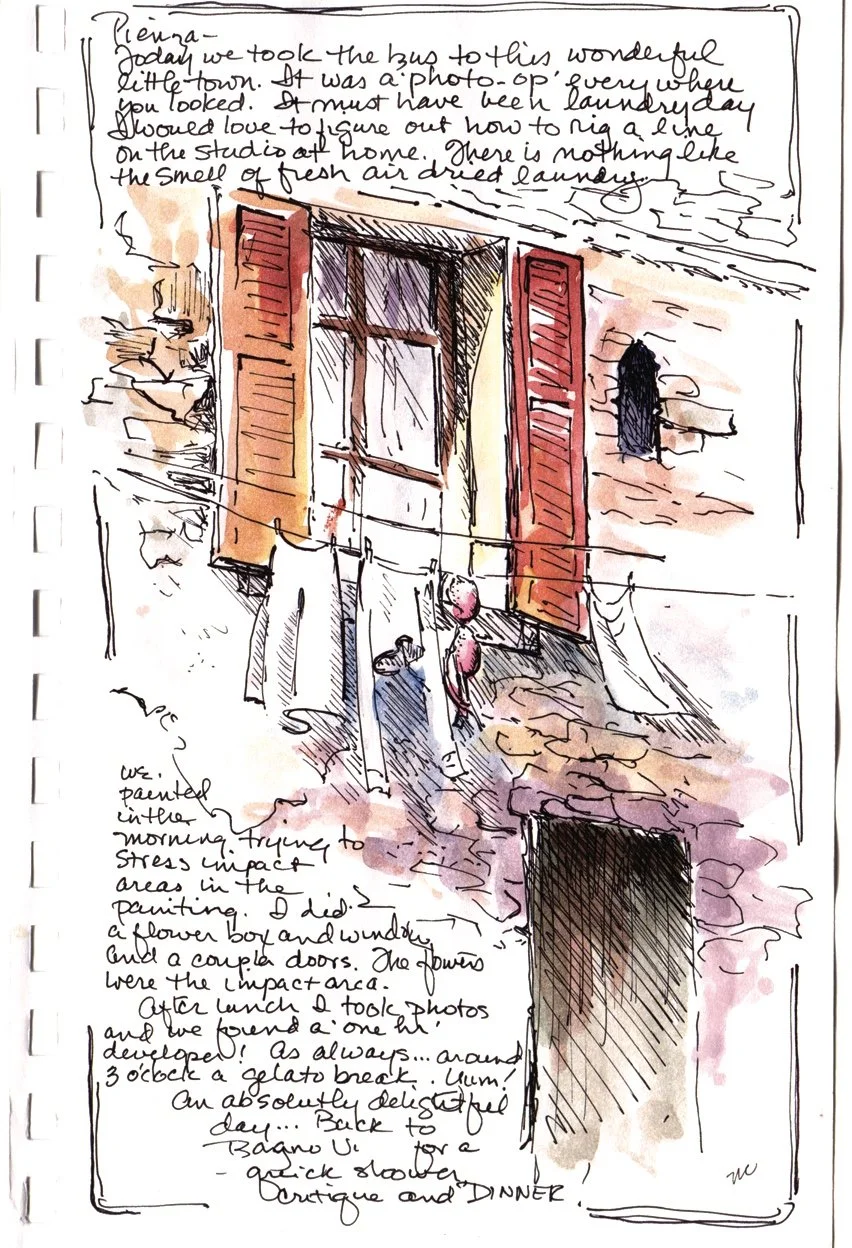 Pienza-
Today we took the bus to this wonderful
little town. It was a 'photo-op' everywhere
you looked. It must have been laundry day
I would love to figure out how to rig a line
on the studio at home. There is nothing like
the smell of fresh air dried laundry.
we.
painted
in the
morning. trying to
stress impact
areas in the
painting. I did
a flower box and window
and a coupla doors. The flowers
were the impact area.
After lunch I took photos
and we found a 'one hr'
developer! As always... around
3 o'cock a gelato break. Yum!
An absolutly delightful
day... Back to
Bagno Vi. for a
- quick shower
critique and "DINNER.